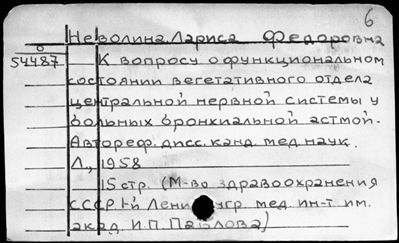 6
Неволина Лариса Федоровна
54487 К вопросу о функциональном
состоянии вегетативного отдела
центральной нервной системы у
больных бронхиальной астмой.
Автореф. дисс. канд. мед. наук.
Л., 1958
15 стр. (М-во здравоохранения
СССР. I-й мед. ин-т им.
акад. И.П. Павлова)